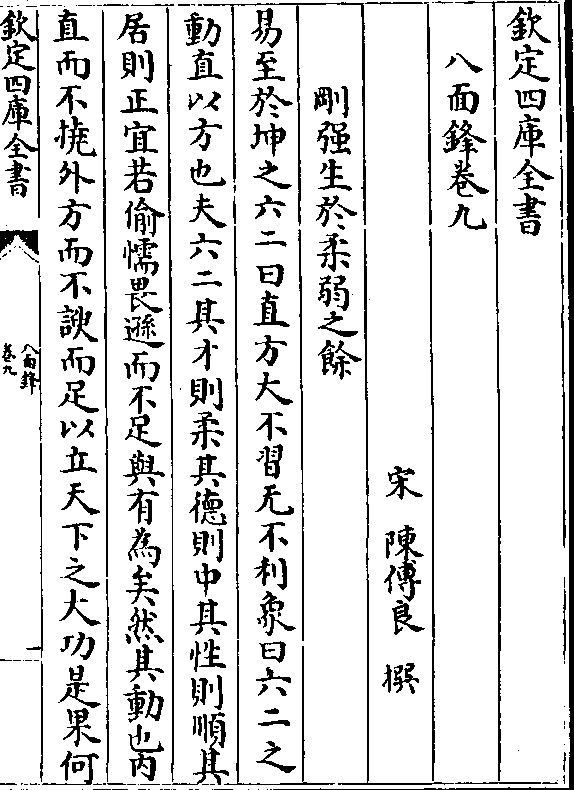 欽定四庫全書
八面鋒卷九
宋　陳傅良　撰
剛强生於柔弱之餘
易至於坤之六二曰直方大不習无不利象曰六二之
動直以方也夫六二其才則柔其德則中其性則順其
居則正宜若偷懦畏遜而不足與有為矣然其動也內
直而不撓外方而不諛而足以立天下之大功是果何
欽定四庫全書
八面鋒
卷九